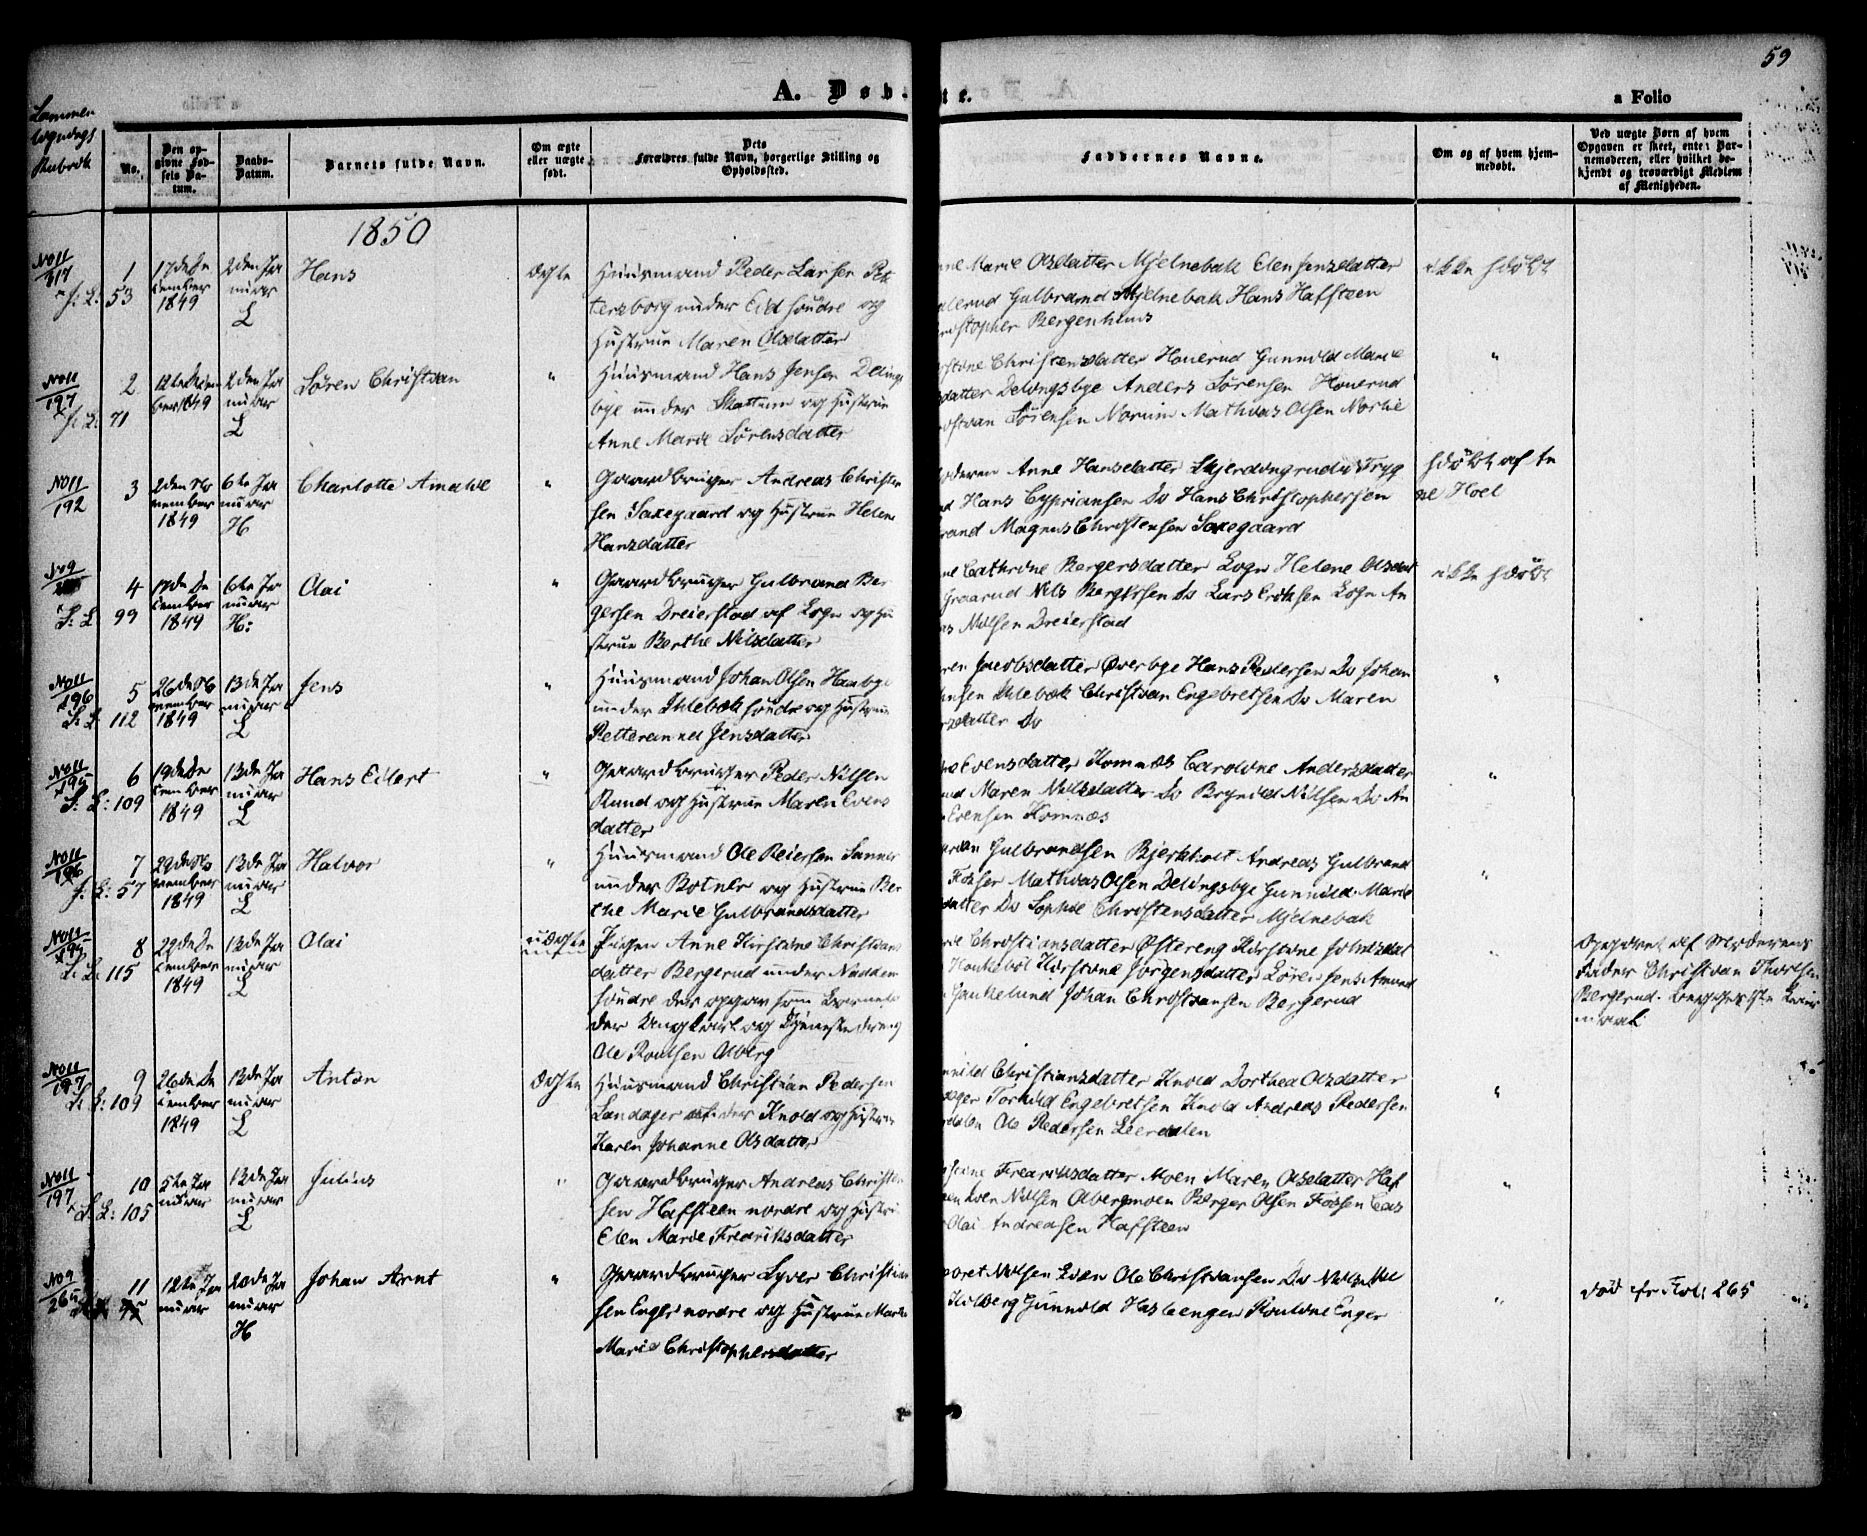 59
A. Døbte.
a Folio
Sammen
No.
Den op-
givne Fød-
sels Da-
tum.
Daabs-
Datum.
Barnets fulde Navn.
Om ægte
eller uægte
født.
Dets
Forældres fulde Navn, borgerlige Stilling og
Opholdssted.
Faddernes Navne.
Om og af hvem hjem-
medøbt.
Ved uægte Børn af hvem
Opgaven er skeet, enten Bar-
nemoderen, eller hvilket be-
kjendt og troværdigt Medlem
af Menigheden.
1850
No 11
317
53
1
17de De
cember
1849
2den Ja
nuar
L
Hans
ægte
Huusmand Peder Larsen Pet
tersborg under Eid søndre og
Hustrue Maren Olsdatter
ne Marie Olsdatter Mjelnebak Elen Jensdatter
lerud Gulbrand Mjelnebak Hans Haffsteen
ristopher Bergenhuus
ikke hdøbt
No 11
197
71
2
1849
2den Ja
nuar
L
Søren Christian
"
Huusmand Hans Jensen Delings
bye under Skattum og Hustrue
Anne Marie Sørensdatter
Christensdatter Houerud Gunnild Marie
datter Delingsbye Anders Sørensen Houerud
istian Sørensen Norum Mathias Olsen Norlie
"
No 11
192
3
2den No
vember
1849
6te Ja
nuar
H
Charlotte Amalie
"
Gaardbruger Andreas Christen
sen Saxegaard og Hustrue Helene
Hansdatter
oderen Anne Hansdatter Skjerdingrud
Hans Cypriansen Do Hans Christophersen
rand Magnus Christensen Saxegaard
hdøbt af An
ne Hoel
No 9
99
4
17de De
cember
1849
6te Ja
nuar
H:
Olai
"
Gaardbruger Gulbrand Ber
gersen Dreierstad af Logn og Hu
strue Berthe Nilsdatter
ne Cathrine Bergersdatter Logn Helene Olsdat
Graarud Nils Bergersen Do Lars Eriksen Logn An
as Nilsen Dreierstad
ikke hdøbt
No 11
196
112
5
26de No
vember
1849
13de Ja
nuar
L
Jens
"
Huusmand Johan Olsen Haubye
under Ihlebæk søndre og Hustrue
Petteranna Jensdatter
ren Jacobsdatter Øverbye Hans Pedersen Do Johan
hnsen Ihlebæk Christian Engebretsen Do Maren
rsdatter Do
"
No 11
195
109
6
19de De
cember
1849
13de Ja
nuar
L
Hans Eilert
"
Gaardbruger Peder Nilsen
Rund og Hustrue Maren Evens
datter
Evensdatter Komnæs Caroline Andersdatter
nd Maren Nilsdatter Do Brynild Nilsen Do An
Evensen Komnæs
"
No 11
196
57
7
29de No
vember
1849
13de Ja
nuar
L
Halvor
"
Huusmand Ole Reiersen Sanner
under Botner og Hustrue Ber
the Marie Gulbrandsdatter
Gulbrandsen Bjerkholt Andreas Gulbrand
Fosser Mathias Olsen Delingsbye Gunnild Marie
datter Do Sophie Christensdatter Mjelnebak
"
No 11
195
115
8
29de De
cember
1849
13de Ja
nuar
L
Olai
uægte
Pigen Anne Kirstine Christians
datter Bergerud under Nødden
søndre der opgav som Barnefa
der Ungkarl og Tjenestedreng
Ole Poulsen Olberg
Christiansdatter Østereng Kirstine Johnsdat
Haukebøl Kirstine Jørgensdatter Søren Jens Amund
Haukelund Johan Christiansen Bergerud
"
Opgivet af Moderens
Fader Christian Thorsen
Bergerud.
No 11
197
109
9
26de De
cember
1849
13de Ja
nuar
L
Anton
ægte
Huusmand Christian Pedersen
Landager under Knold og Hustrue
Karen Johanne Olsdatter
nnild Christiansdatter Knold Dorthea Olsdatter
dager Torkild Engebretsen Knold Andreas Pedersen
rdalen Ole Pedersen Leerdalen
"
No 11
197
105
10
5te Ja
nuar
13de Ja
nuar
L
Julius
"
Gaardbruger Andreas Christen
sen Haffsteen nordre og Hustrue
Elen Marie Fredriksdatter
Fredriksdatter Moen Maren Olsdatter Haf
Iver Nilsen Olbergmoen Berger Olsen Fossen
Olai Andreasen Haffsteen
"
No 9
265
11
12te Ja
nuar
20de Ja
nuar
H
Johan Arnt
"
Gaardbruger Syver Christian
sen Enger nordre og Hustrue Marthe
Marie Christophersdatter
oret Nilsen Ole Christiansen Do
Kolberg Gunnild Haslengen Pouline Enger
"
død cfr Fol: 265